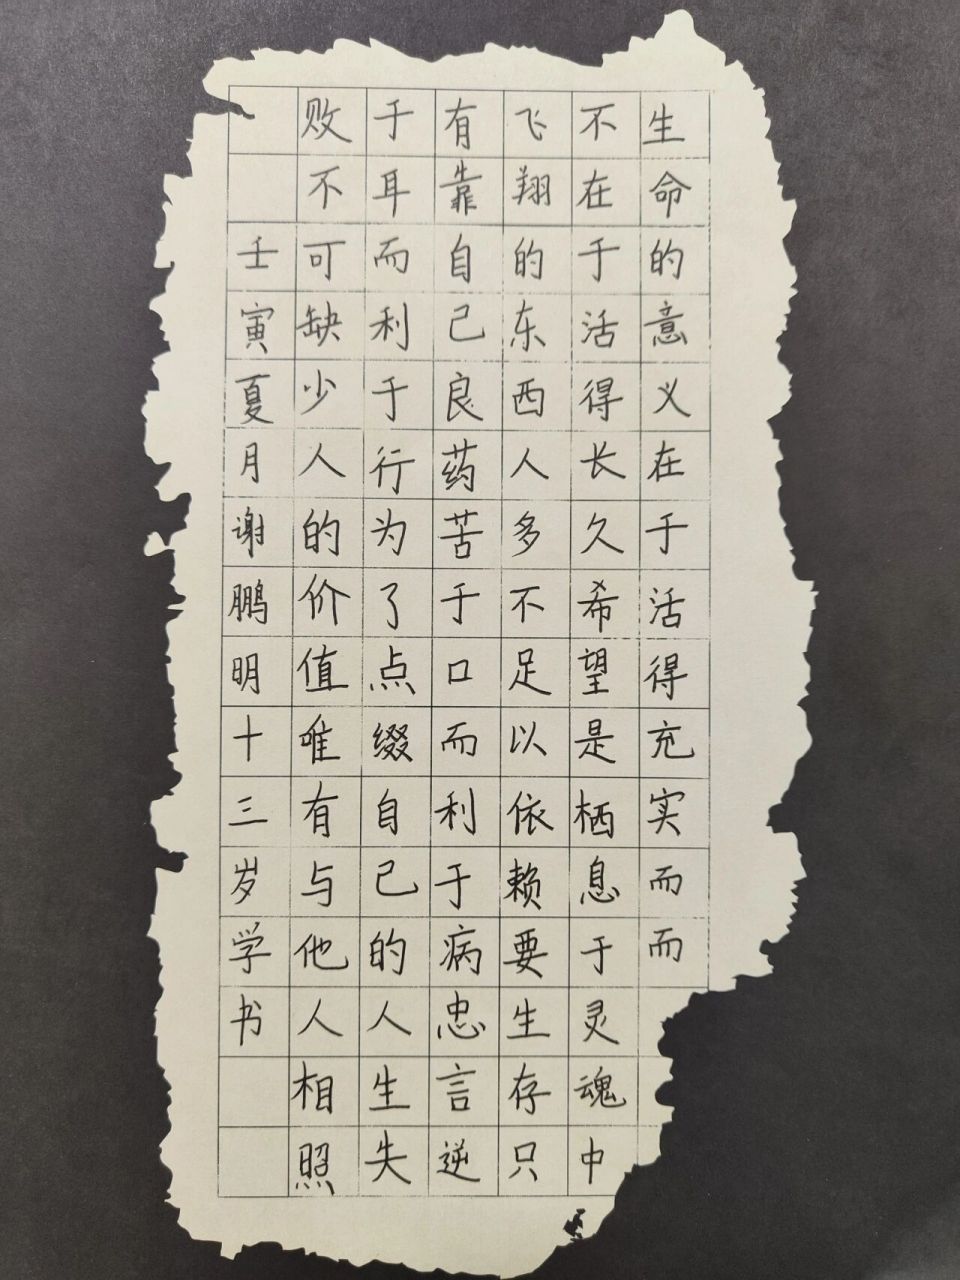 生命的意义在于活得充实而而
不在于活得长久希望是栖息于灵魂中
飞翔的东西人多不足以依赖要生存只
有靠自己良药苦于口而利于病忠言逆
于耳而利于行为了点缀自己的人生失
败不可缺少人的价值唯有与他人相照
壬寅夏月谢鹏明十三岁学书